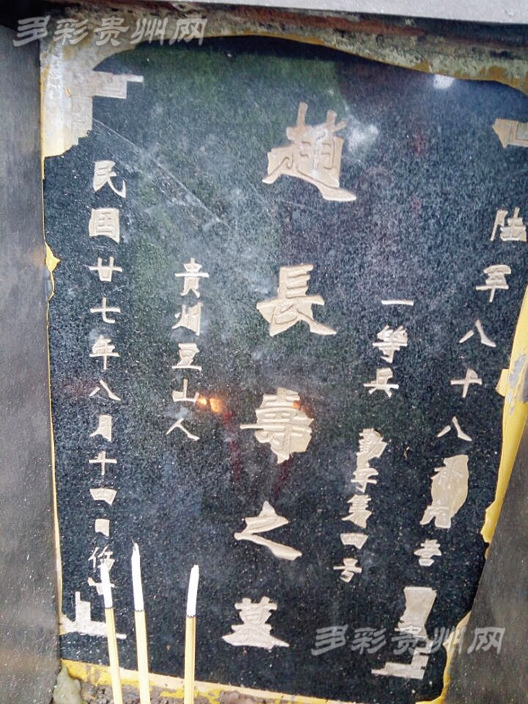 多彩贵州网
陆军八十八
一等兵 字第四号
趙長壽之墓
贵州豆山人
民国廿七年八月十四日
多彩贵州网